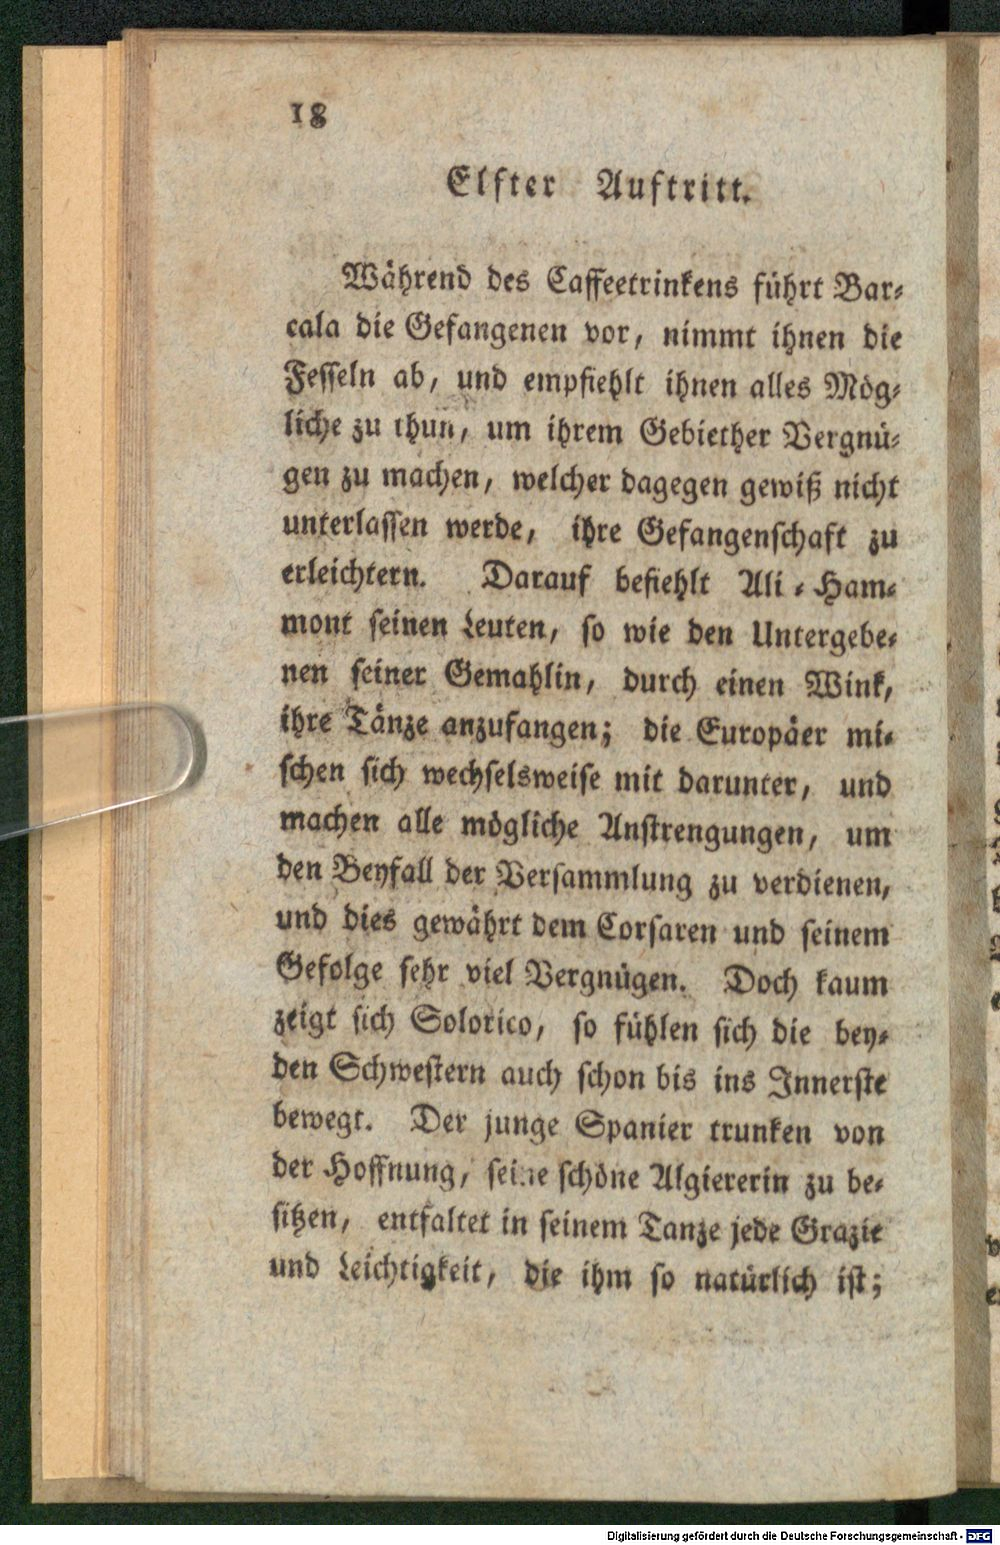 18
Elfter Auftritt.
Während des Caffeetrinkens führt Bar-
cala die Gefangenen vor, nimmt ihnen die
Fesseln ab, und empfiehlt ihnen alles Mög-
liche zu thun, um ihrem Gebiether Vergnü-
gen zu machen, welcher dagegen gewiß nicht
unterlassen werde, ihre Gefangenschaft zu
erleichtern. Darauf befiehlt Ali-Ham-
mont seinen Leuten, so wie den Untergebe-
nen seiner Gemahlin, durch einen Wink,
ihre Tänze anzufangen; die Europäer mi-
schen sich wechselsweise mit darunter, und
machen alle mögliche Anstrengungen, um
den Beyfall der Versammlung zu verdienen,
und dies gewährt dem Corsaren und seinem
Gefolge sehr viel Vergnügen. Doch kaum
zeigt sich Solorico, so fühlen sich die bey-
den Schwestern auch schon bis ins Innerste
bewegt. Der junge Spanier trunken von
der Hoffnung, seine schöne Algiererin zu be-
sitzen, entfaltet in seinem Tanze jede Grazie
und Leichtigkeit, die ihm so natürlich ist;
Digitalisierung gefördert durch die Deutsche Forschungsgemeinschaft - DFG